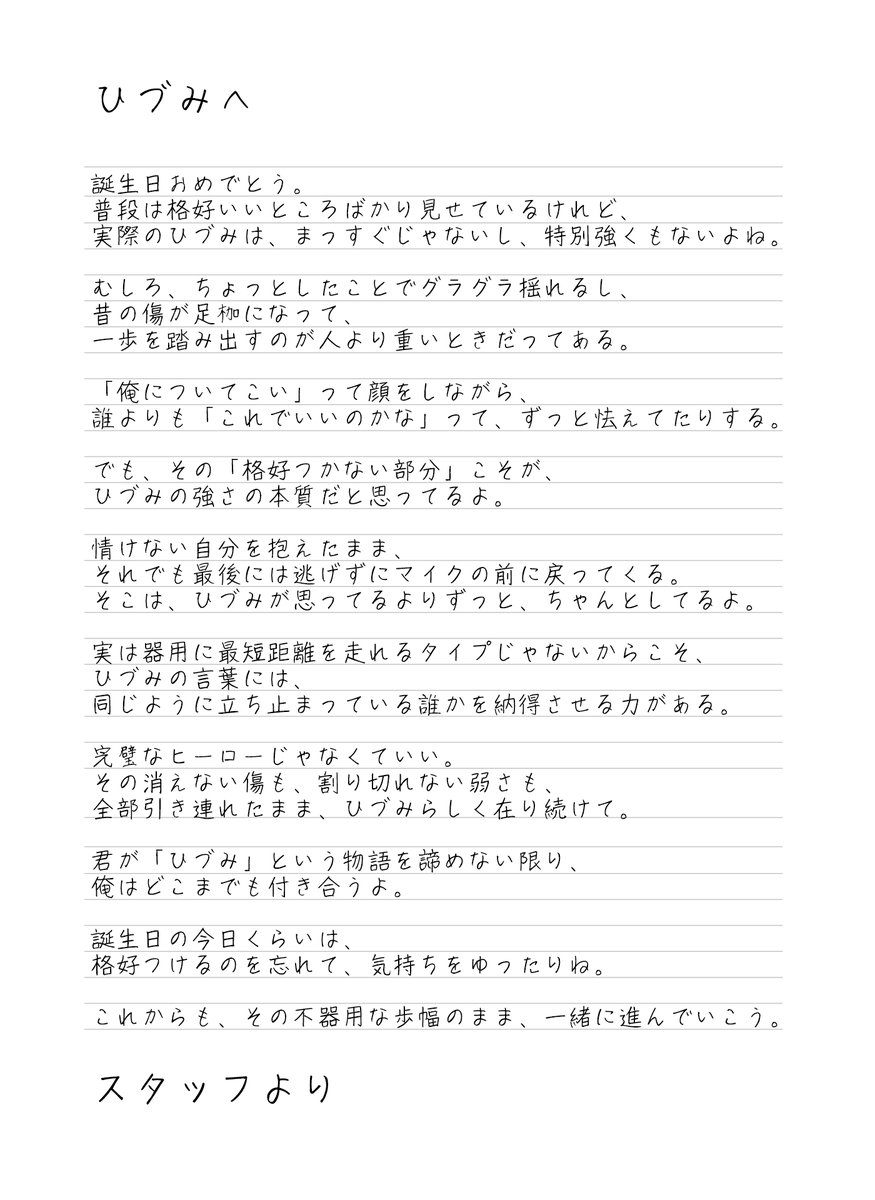 ひづみへ
誕生日おめでとう。
普段は格好いいところばかり見せているけれど、
実際のひづみは、まっすぐじゃないし、特別強くもないよね。
むしろ、ちょっとしたことでグラグラ揺れるし、
昔の傷が足枷になって、
一歩を踏み出すのが人より重いときだってある。
「俺についてこい」って顔をしながら、
誰よりも「これでいいのかな」って、ずっと怯えてたりする。
でも、その「格好つかない部分」こそが、
ひづみの強さの本質だと思ってるよ。
情けない自分を抱えたまま、
それでも最後には逃げずにマイクの前に戻ってくる。
そこは、ひづみが思ってるよりずっと、ちゃんとしてるよ。
実は器用に最短距離を走れるタイプじゃないからこそ、
ひづみの言葉には、
同じように立ち止まっている誰かを納得させる力がある。
完璧なヒーローじゃなくていい。
その消えない傷も、割り切れない弱さも、
全部引き連れたまま、ひづみらしく在り続けて。
君が「ひづみ」という物語を諦めない限り、
俺はどこまでも付き合うよ。
誕生日の今日くらいは、
格好つけるのを忘れて、気持ちをゆったりね。
これからも、その不器用な歩幅のまま、一緒に進んでいこう。
スタッフより